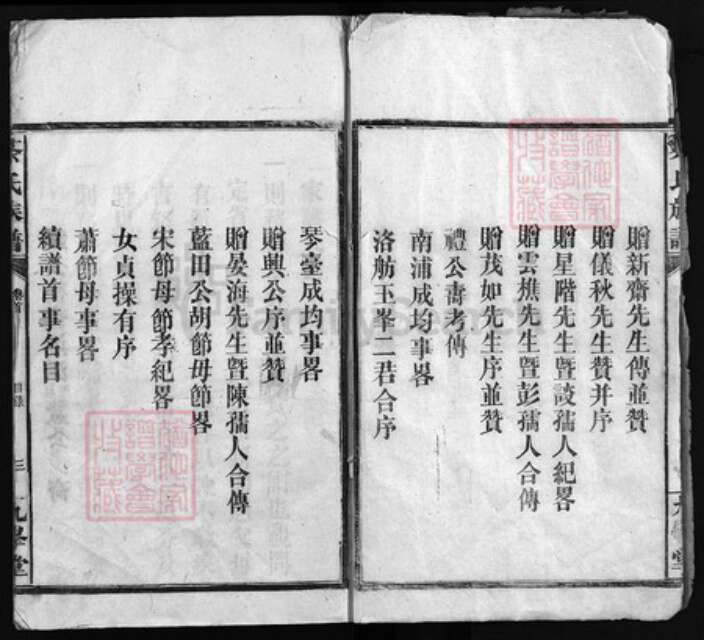 贈新齋先生傳並贊
贈儀秋先生贊并序
贈星階先生暨談孺人紀畧
贈雲樵先生暨彭孺人合傳
贈茂如先生序並贊
禮公壽考傳
南浦成均事畧
洛舫玉峯二君合序
琴臺成均事畧
贈興公序並贊
贈晏海先生暨陳孺人合傳
藍田公胡節母節畧
宋節母節孝紀畧
女貞操有序
蕭節母事畧
續譜首事名目
氏族譜
卷首
目錄
三
堂
FamilySearch